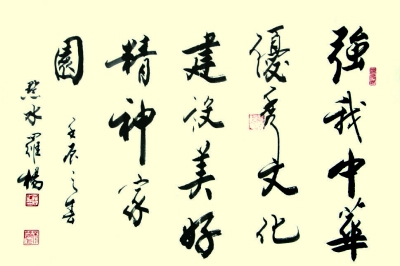 強我中華
優秀文化
建設美好
精神家
園
壬辰之春
水羅楊